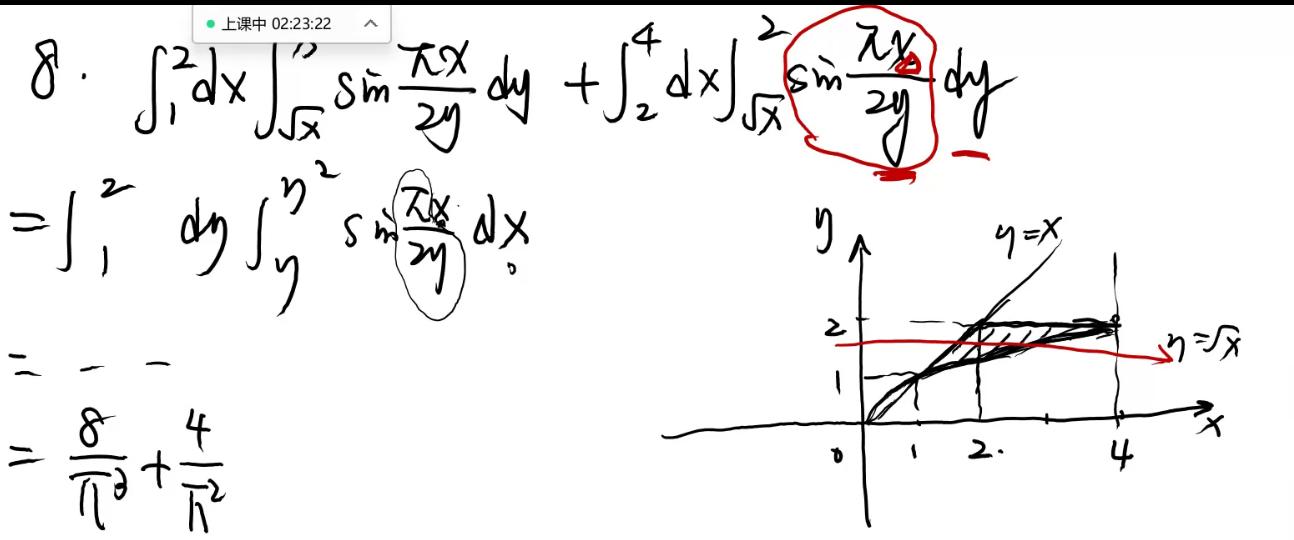 上课中 02:23:22
8. ∫₁² dx ∫_{√x} sin πx/2y dy + ∫₂⁴ dx ∫_{√x}^2 sin πx/2y dy
= ∫₁² dy ∫_y^{y²} sin πx/2y dx
= - -
= 8/π³ + 4/π²
y
y=x
2
y=√x
1
x
0 1 2. 4